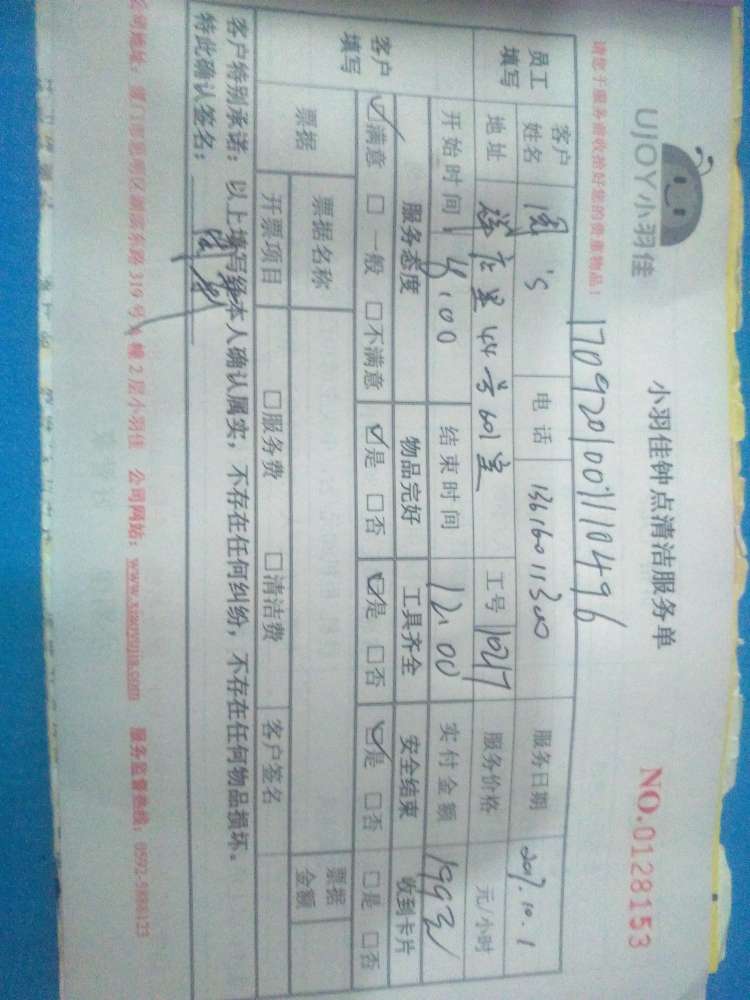 UJOY小羽佳
小羽佳钟点清洁服务单
NO.0128153
请您于服务前收拾好您的贵重物品!
170920100711110496
员工填写 客户姓名 's 电话 13616011300 服务日期 2017.10.1
地址 44号601室 工号 1027 服务价格 元/小时
开始时间 :00 结束时间 12:00 实付金额 199元
客户填写 服务态度 物品完好 工具齐全 安全结束 收到卡片
☑满意 □一般 □不满意 ☑是 □否 ☑是 □否 ☑是 □否 □是 □否
票据 票据名称 □服务费 □清洁费 票据金额
开票项目 客户签名
客户特别承诺:以上填写经本人确认属实,不存在任何纠纷,不存在任何物品损坏。
特此确认签名:
公司地址:厦门市思明区湖滨东路319号 幢2层小羽佳 公司网站:www.xiaoyujia.com 服务监督热线:0592-5888123